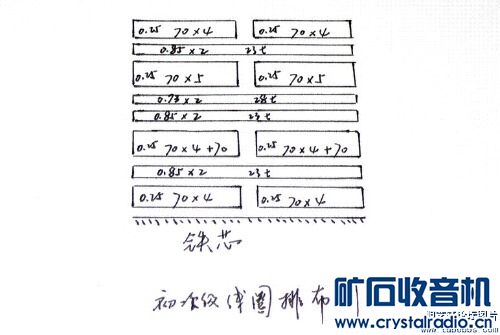 0.25 70×4 0.25 70×4
0.85×2 23t
0.25 70×5 0.25 70×5
0.73×2 28t
0.85×2 23t
0.25 70×4+70 0.25 70×4+70
0.85×2 23t
0.25 70×4 0.25 70×4
铁芯
初次级线圈排布
矿石收音机
www.crystalradio.cn